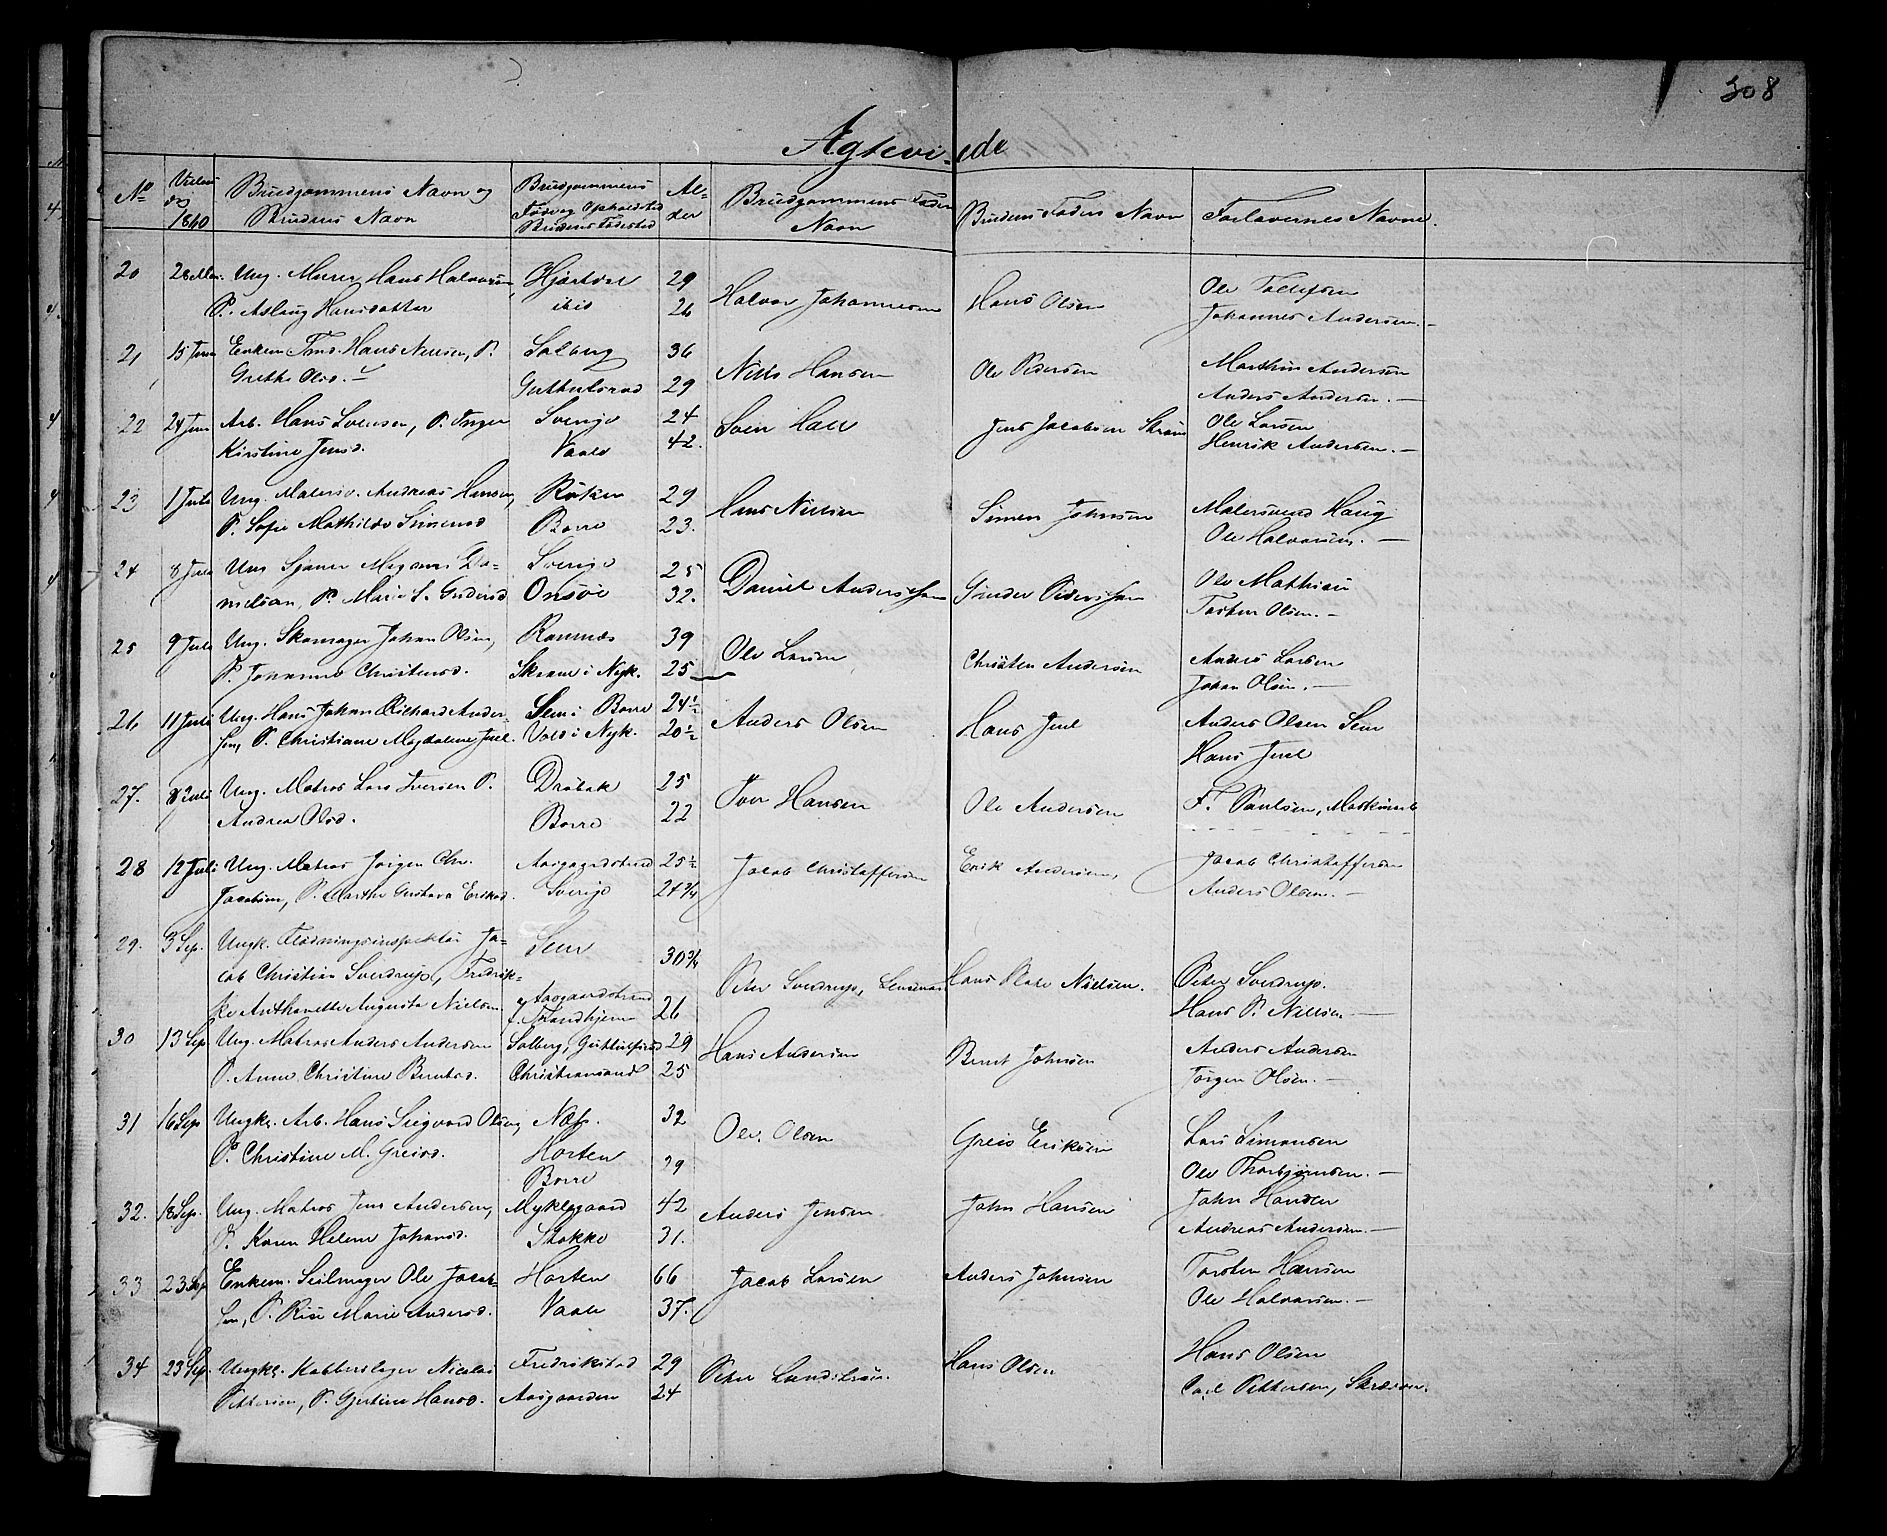 308
Ægtevi-ede
No
Vielses
Dag
1860
Brudgommens Navn og
Brudens Navn
Brudgommens
Fødested Opholdsted
Brudens Fødested
Al-
der
Brudgommens Faders
Navn
Brudens Faders Navn
Forlovernes Navne.
20 28 Mai. Ung. Murer Hans Halvorsen, Hjartdal 29 Halvor Johannesen Hans Olsen Ole
P. Aslaug Hansdatter ibid 26 Johannes Andersen. —
21 15 Juni Enkem. Hans Nielsen, P. Solberg 36 Niels Hansen Ole Pedersen Marthin Andersen
Grethe Olsd. — 29 Anders Andersen. —
22 24 Juni Arb. Hans Svensen, P. Inger Sverige 24 Svein Hall Jens Jacobsen Ole Larsen
Kirstine Jensd. Vaale 42. Henrik Andersen. —
23 1 Juli Ung. Malersv. Andreas Hansen, Røken 29 Hans Nielsen Simen Johnsen Malersvend Haug
P. Sofie Mathilde Simensd Borre 23. Ole Halvorsen. —
24 8 Juli Ung Magnus Da- Sverige 25 Daniel Anderssson Gunder Pederssen Ole Mathisen
nielsan, P. Marie S. Gundersd Onsøe 32. Torsten Olsen. —
25 9 Juli Ung. Skomager Johan Olsen, Ramnæs 39 Ole Larsen Christen Andersen Anders Larsen
P. Johanne Christensd. i Nyk. 25 Johan Olsen. —
26 11 Juli Ung. Hans Johan Richard Ander- Sem i Borre 24½ Anders Olsen Hans Juel Anders Olsen Sem
sen, P. Christiane Magdalene Juel. Vold i Nyk. 20½ Hans Juel
27. 8 Juli Ung. Matros Lars Iversen P. Drøbak 25 Iver Hansen Ole Andersen F. Paulsen,
Andrea Olsd. Borre 22
28 12 Juli Ung. Matros Jørgen Chr. Aasgaardstrand 25½ Jacob Christoffersen Erik Andersen, Jacob Christoffersen
Jacobsen, P. Marthe Gustava Eriksd. Sverige 24¾ Anders Olsen. —
29. 3 Sep. Ungk. Flødningsinspektør Ja- Sem 30¾ Peter Sverdrup, Lensmand Hans Plade Nielsen. Peter Sverdrup.
cob Christian Sverdrup, Fredrik-
ke Anthonette Augusta Nielsen Aasgaardstrand
f. Trondhjem 26 Hans P. Nielsen —
30 13 Sep Ung. Matros Anders Andersen Solberg, 29 Hans Andersen Bernt Johnsen Anders Andersen
P. Anne Christine Berntsd. Christianssand 25 Jørgen Olsen. —
31 16 Sep Ungk. Arb. Hans Siegvard Olsen, Næs. 32 Ole Olsen Greis Eriksen Lars Simonsen
P. Christine M. Greisd. Horten 29 Ole Thorbjørnsen. —
Borre
32. 18 Sep. Ung. Matros Jens Andersen, Myklegaard 42 Anders Jensen John Hansen John Hansen
P. Karen Helene Johansd. Stokke 31. Andreas Andersen —
33 23 Sep Enkem. Seilmager Ole Jacob- Horten 66 Jacob Larsen Anders Johnsen Torsten Hansen
sen, P. Risi Marie Andersd. Vaale 37. Ole Halvorsen. —
34 23 Sep. Ungk. Kobberslager Nicolai Fredrikstad 29 Peter Lundstrøm. Hans Olsen Hans Olsen
Pettersen, P. Gjertine Hansd. Aasgaarden 24 Carl Pettersen,